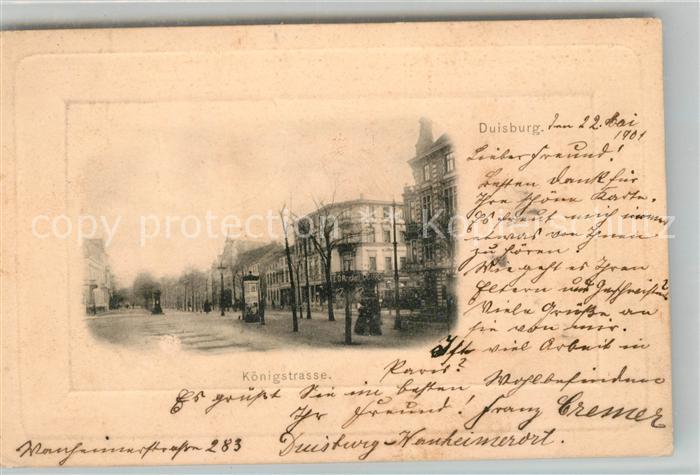 Duisburg. den 22. Mai
1901
Lieber Freund!
Besten Dank für
Ihre schöne Karte.
Es freut mich immer
etwas von Ihnen
zu hören.
Wie geht es Ihren
Eltern und Geschwister?
Viele Grüße an
sie von mir.
Ist viel Arbeit in
Paris?
Königstrasse.
Es grüßt Sie im besten Wohlbefinden
Ihr Freund! Franz Cremer
Wanheimerstraße 283
Duisburg-Wanheimerort.
copy protection